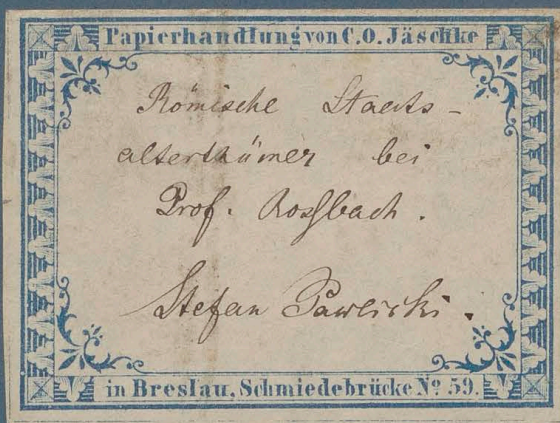 Papierhandlung von C. O. Jäschke
Römische Staats-
alterthümer bei
Prof. Rossbach.
Stefan Pawlicki.
in Breslau, Schmiedebrücke No. 59.